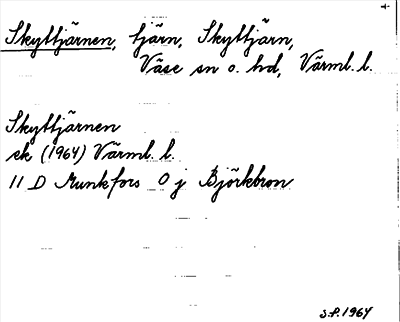 Skyttjärnen, tjärn, Skyttjärn,
Väse sn o. hd, Värml. l.
Skyttjärnen
ek (1964) Värml. l.
11 D Munkfors 0 j Björkbron
S.P. 1964